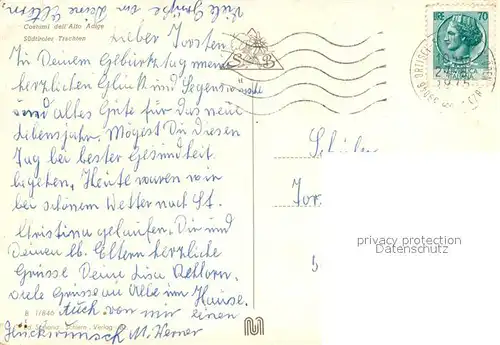 Viele Grüße an Deine Eltern.
Costumi dell'Alto Adige
Südtiroler Trachten
Lieber Torsten
Zu Deinem Geburtstag meine
herzlichen Glück und Segenswünsche
und alles Gute für das neue
Lebensjahr. Mögest Du diesen
Tag bei bester Gesundheit
begehen. Heute waren wir
bei schönem Wetter nach St.
Christina gelaufen. Dir und
Deinen lb. Eltern herzliche
Grüsse Deine Lisa
viele Grüsse an Alle im Hause.
Auch von mir einen
Glückwunsch M. Werner
B 1/846
Verlag
LIRE 70
ORTISEI
1975
Schüler
Tor
privacy protection
Datenschutz